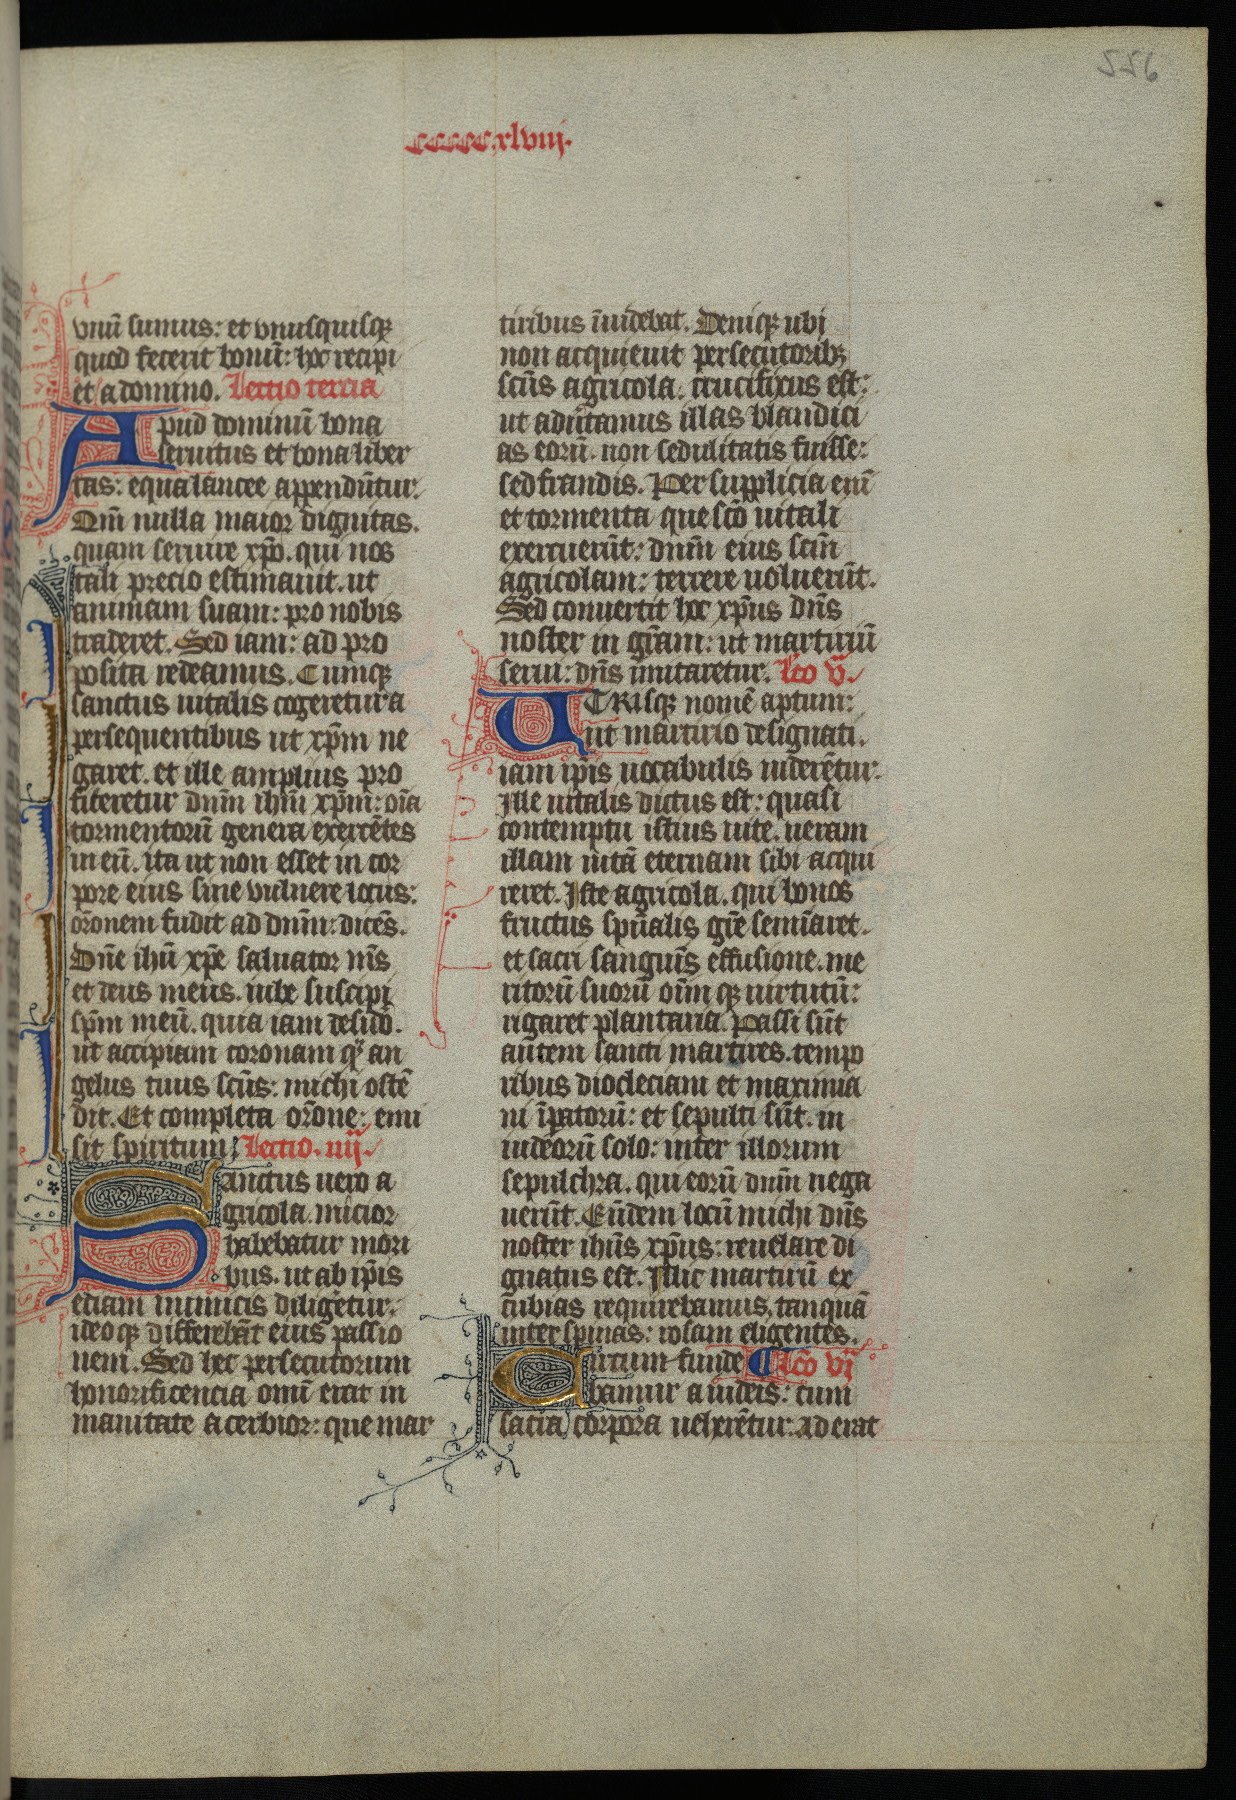 556
cccccxlviij.
vnū sumus: et vnusquisq̨
quod fecerit bonū: hoc recipi
et a domino. Lectio tercia
Apud dominū bona
seruitus et bona liber
tas: equa lancee appendūtur.
Qm̄ nulla maior dignitas.
quam seruire xp̄o. qui nos
tali precio estimauit. ut
animam suam: pro nobis
traderet. Sed iam: ad pro
posita redeamus. Cumq̨
sanctus uitalis cogeretur a
persequentibus ut xp̄m ne
garet. et ille amplius pro
fiteretur dnm̄ ihm̄ xp̄m: oīa
tormentorū genera exercētes
in eū. ita ut non esset in cor
pore eius sine vulnere locus:
orōnem fudit ad dnm̄: dicēs.
Dn̄e ihū xp̄e saluator m̄s
et deus meus. iube suscipi
sp̄m meū. quia iam desid̄o.
ut accipiam coronam q̄ an
gelus tuus scūs: michi ostē
dit. Et completa orōne: emi
sit spiritum; Lectio. iiij.
Sanctus uero a
gricola. micior
habebatur mori
bus. ut ab ip̄is
eciam inimicis diligētur:
ideoq̨ differebāt eius passio
nem. Sed hec persecutorum
honorificencia omī erat in
manitate acerbior: que mar
tiribus īuidebat. Deniq̨ ubi
non acquieuit persecutorib;
scūs agricola. crucifixus est:
ut aduītamus illas blandici
as eorū. non sedulitatis fuisse:
sed fraudis. Per supplicia enī
et tormenta que scō uitali
exercuerūt: dnm̄ eius scm̄
agricolam: terrere uoluerūt.
Sed conuertit hoc xp̄us dn̄s
noster in gr̄am: ut martiriū
serui: dn̄s imitaretur. Lc̄o v.
UTRIsq̨ nomē aptum:
ut martirio designati.
iam ip̄is uocabulis uiderētur.
Ille uitalis dictus est: quasi
contemptu istius uite. ueram
illam uitā eternam sibi acqui
reret. Iste agricola. qui bonos
fructus spūalis gr̄e semīaret.
et sacri sanguīs effusione. me
ritorū suorū oīm q̨ uirtutū:
rigaret plantaria. Passi sūt
autem sancti martires. tempo
ribus diocleciani et maximia
ni īpatorū: et sepulti sūt. in
iudeorū solo: inter illorum
sepulchra. qui eorū dnm̄ nega
uerūt. Eūdem locū michi dn̄s
noster ihūs xp̄us: reuelare di
gnatus est. Illic martirū ex
cubias requirebamus. tanquā
inter spinas: rosam eligentes.
Circumfunde Lc̄o vj
bamur a iudeis: cum
sacra corpora ueherētur. ad erat